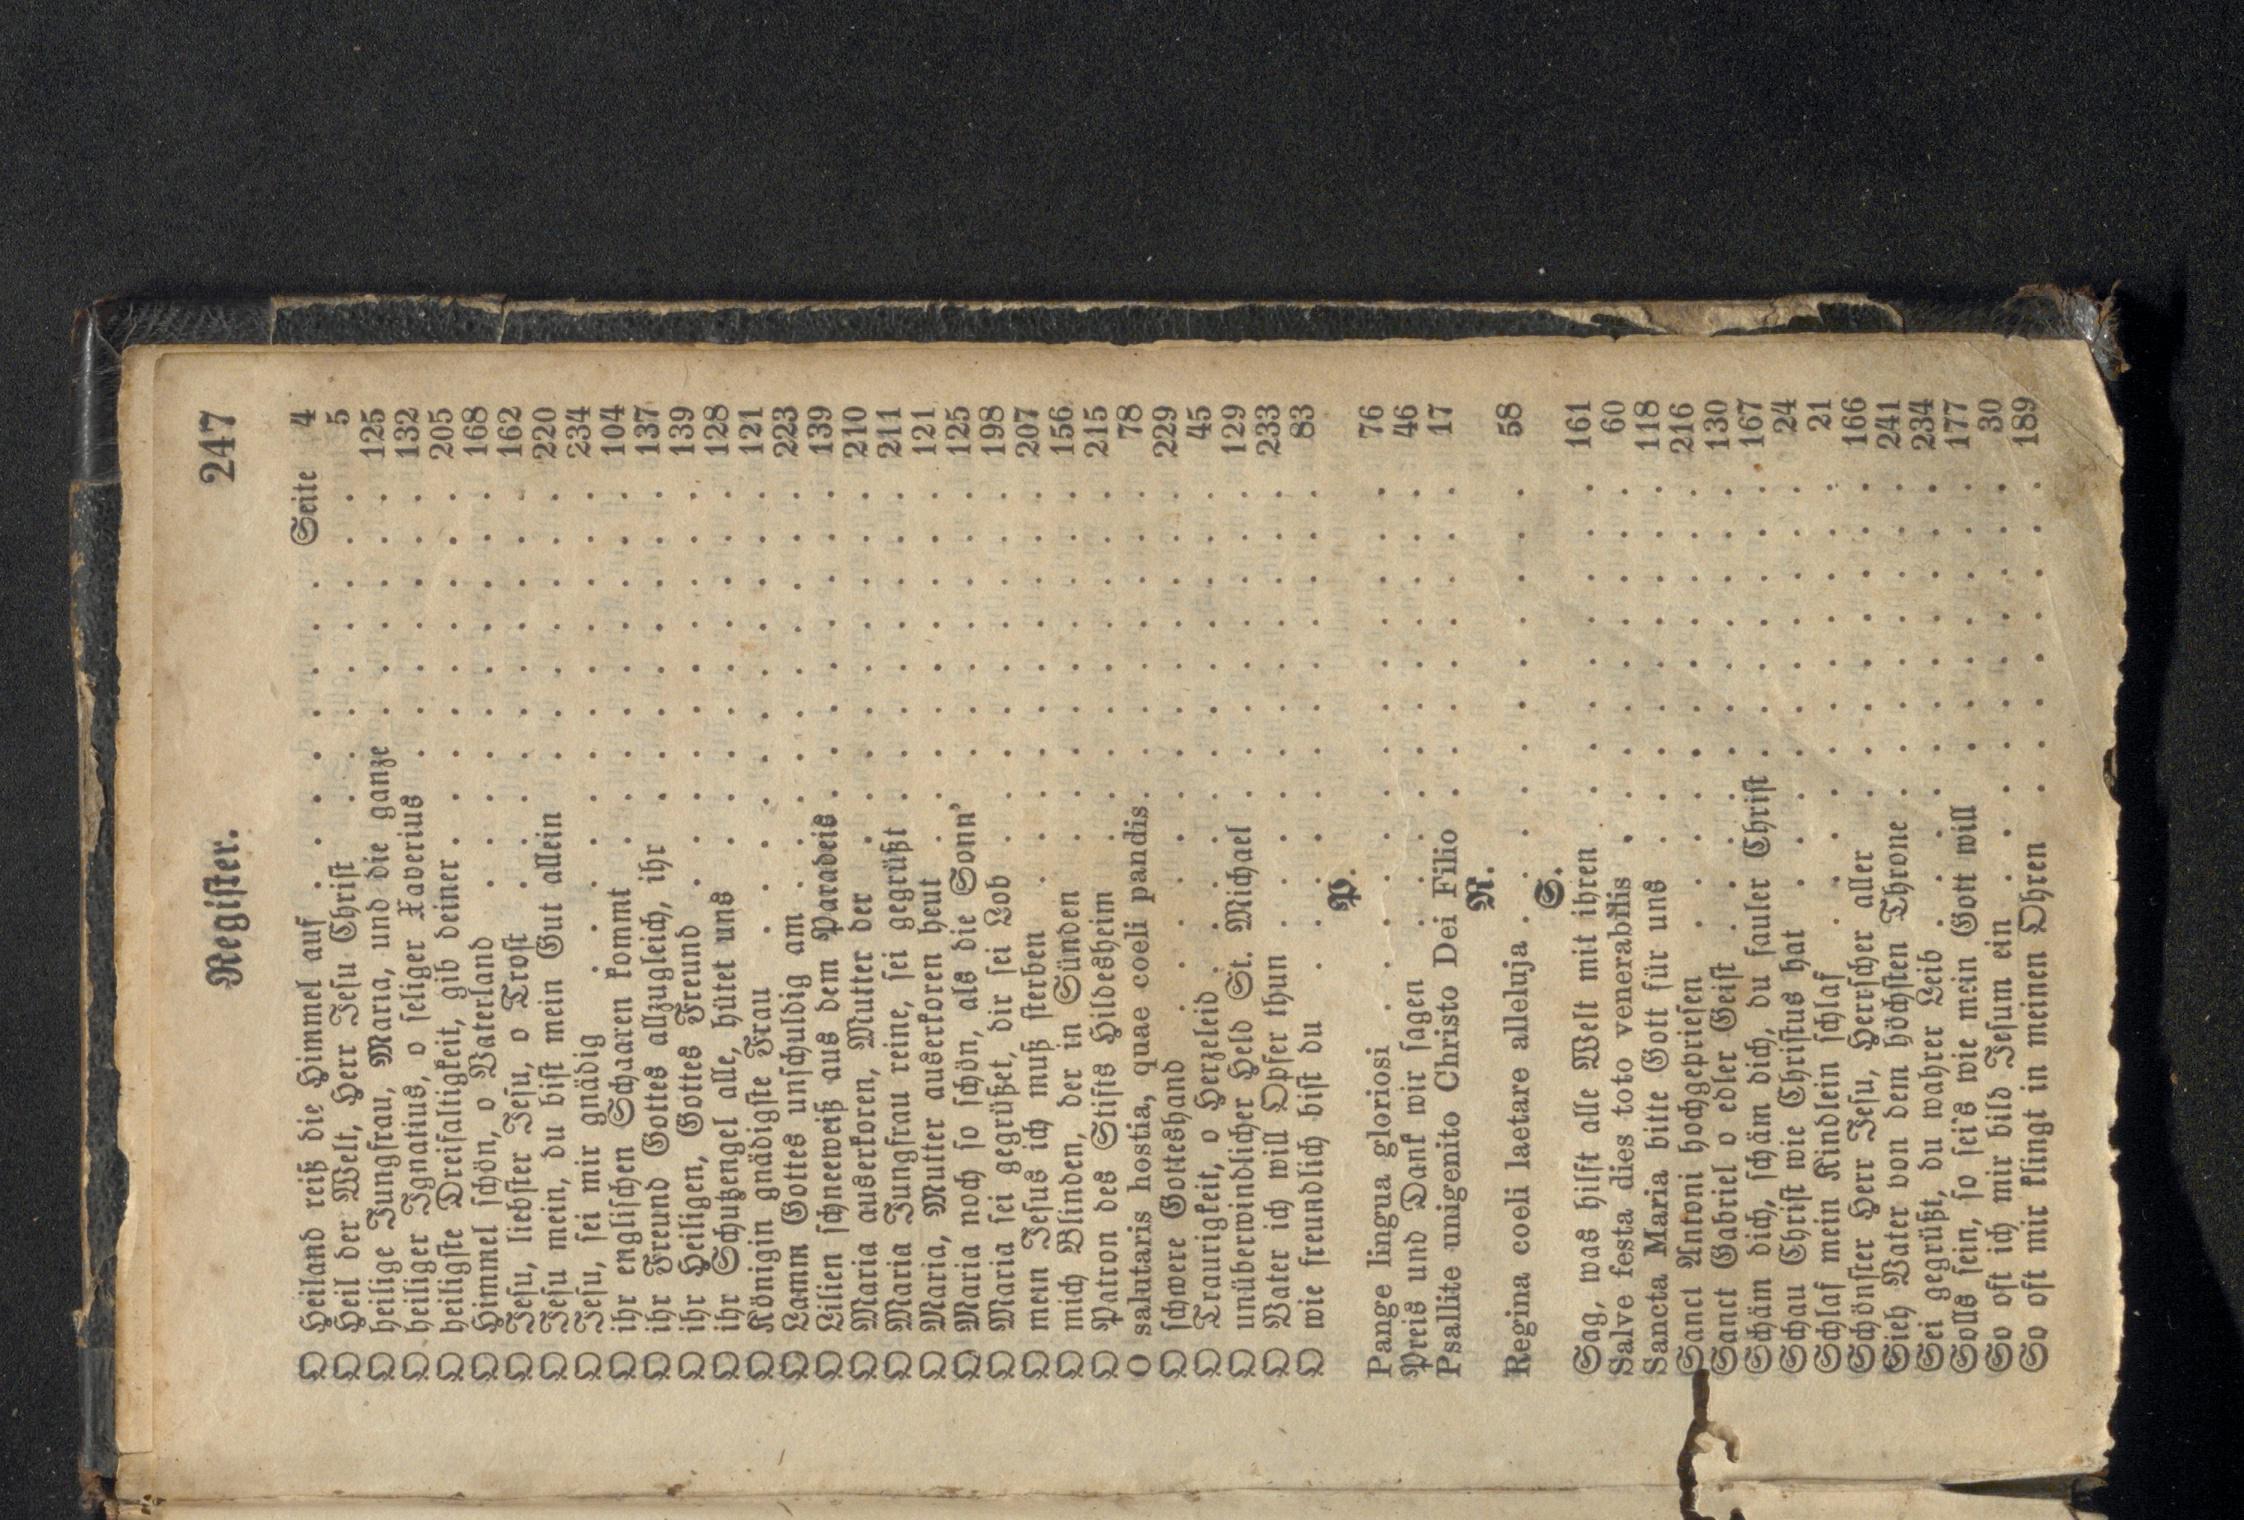 Register. 247
Seite
O Heiland reiß die Himmel auf . . . . . . . . 4
O Heil der Welt, Herr Jesu Christ . . . . . . . . 5
O heilige Jungfrau, Maria, und die ganze . . . . . . 125
O heiliger Ignatius, o seliger Xaverius . . . . . . . 132
O heiligste Dreifaltigkeit, gib deiner . . . . . . . . . 205
O Himmel schön, o Vaterland . . . . . . . . . . 168
O Jesu, liebster Jesu, o Trost . . . . . . . . . . 162
O Jesu mein, du bist mein Gut allein . . . . . . . . 220
O Jesu, sei mir gnädig . . . . . . . . . . . . 234
O ihr englischen Schaaren kommt . . . . . . . . . 104
O ihr Freund Gottes allzugleich, ihr . . . . . . . . 137
O ihr Heiligen, Gottes Freund . . . . . . . . . . 139
O ihr Schutzengel alle, hütet uns . . . . . . . . . 128
O Königin gnädigste Frau . . . . . . . . . . . 121
O Lamm Gottes unschuldig am . . . . . . . . . . 223
O Lilien schneeweiß aus dem Paradeis . . . . . . . . 139
O Maria auserkoren, Mutter der . . . . . . . . . 210
O Maria Jungfrau reine, sei gegrüßt . . . . . . . . 211
O Maria, Mutter auserkoren heut . . . . . . . . . 121
O Maria noch so schön, als die Sonn' . . . . . . . . 125
O Maria sei gegrüßet, dir sei Lob . . . . . . . . . 198
O mein Jesus ich muß sterben . . . . . . . . . . 207
O mich Blinden, der in Sünden . . . . . . . . . 156
O Patron des Stifts Hildesheim . . . . . . . . . 215
O salutaris hostia, quae coeli pandis . . . . . . . . 78
O schwere Gotteshand . . . . . . . . . . . . 229
O Traurigkeit, o Herzeleid . . . . . . . . . . . 45
O unüberwindlicher Held St. Michael . . . . . . . . 129
O Vater ich will Opfer thun . . . . . . . . . . . 233
O wie freundlich bist du . . . . . . . . . . . . 83
P.
Pange lingua gloriosi . . . . . . . . . . . . 76
Preis und Dank wir sagen . . . . . . . . . . . 46
Psallite unigenito Christo Dei Filio . . . . . . . . 17
R.
Regina coeli laetare alleluja . . . . . . . . . . 58
S.
Sag, was hilft alle Welt mit ihren . . . . . . . . . 161
Salve festa dies toto venerabilis . . . . . . . . . 60
Sancta Maria bitte Gott für uns . . . . . . . . . 118
Sanct Antoni hochgepriesen . . . . . . . . . . . 216
Sanct Gabriel o edler Geist . . . . . . . . . . . 130
Schäm dich, schäm dich, du fauler Christ . . . . . . . 167
Schau Christ wie Christus hat . . . . . . . . . . 24
Schlaf mein Kindlein schlaf . . . . . . . . . . . 21
Schönster Herr Jesu, Herrscher aller . . . . . . . . 166
Sieh Vater von dem höchsten Throne . . . . . . . . 241
Sei gegrüßt, du wahrer Leib . . . . . . . . . . . 234
Solls sein, so sei's wie mein Gott will . . . . . . . . 177
So oft ich mir bild Jesum ein . . . . . . . . . . 30
So oft mir klingt in meinen Ohren . . . . . . . . . 189